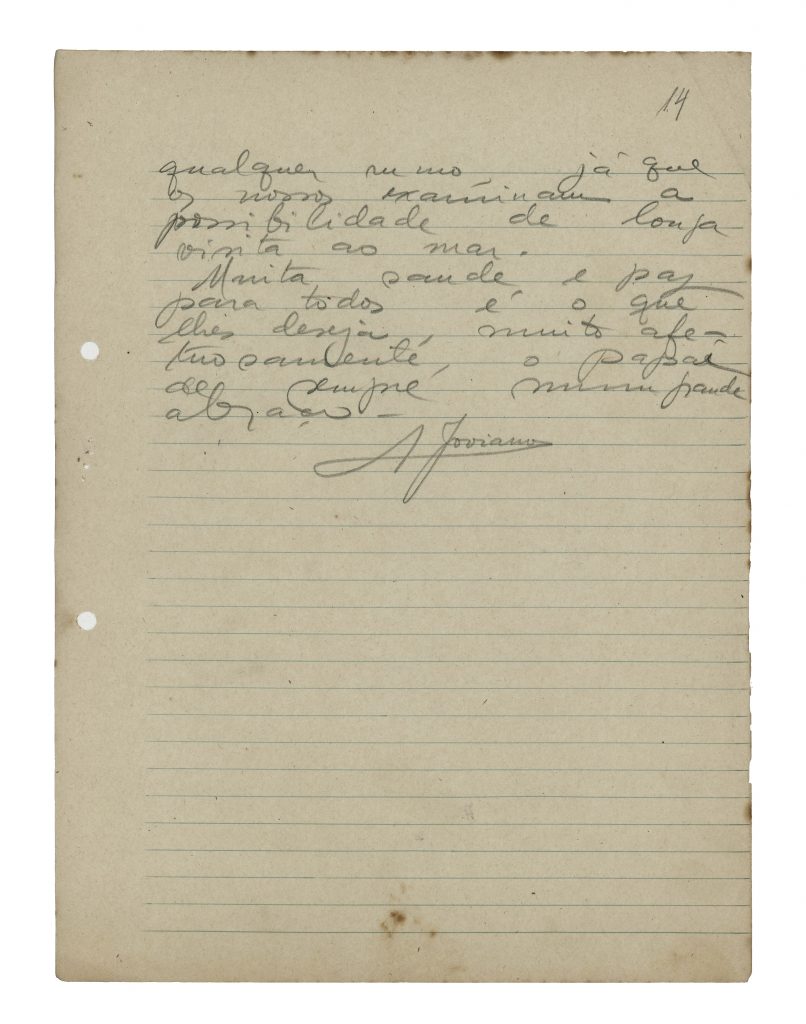 14
qualquer rumo, já que
os nossos examinam a
possibilidade de longa
visita ao mar.
Muita saude e paz
para todos é o que
lhes deseja, muito afe-
tuosamente, o papai
de sempre num grande
abraço -
A Joviano